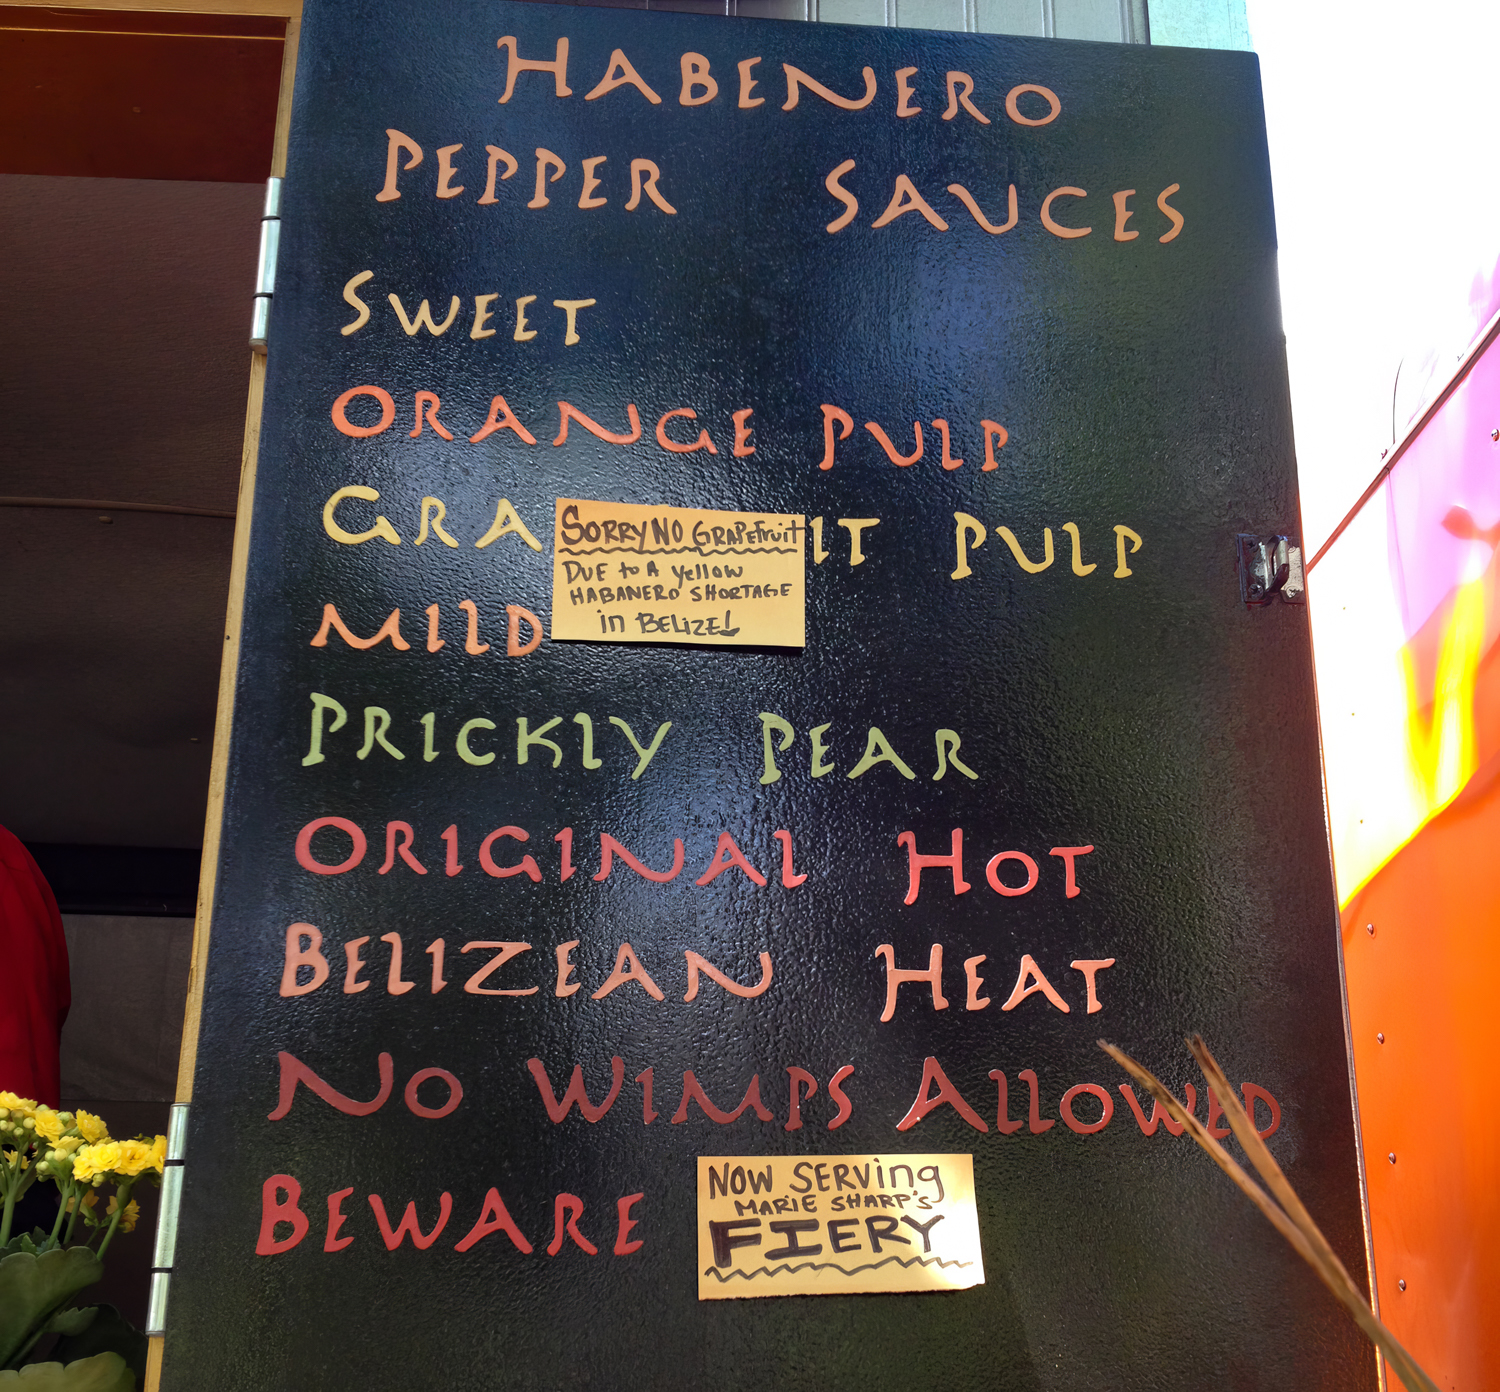 HABENERO
PEPPER SAUCES
SWEET
ORANGE PULP
GRA IT PULP
SORRY NO GRAPEFruit
DUE to A yellow
HABANERO SHORTAGE
in BELIZE!
MILD
PRICKLY PEAR
ORIGINAL HOT
BELIZEAN HEAT
NO WIMPS ALLOWED
BEWARE
NOW SERVING
MARIE SHARP'S
FIERY